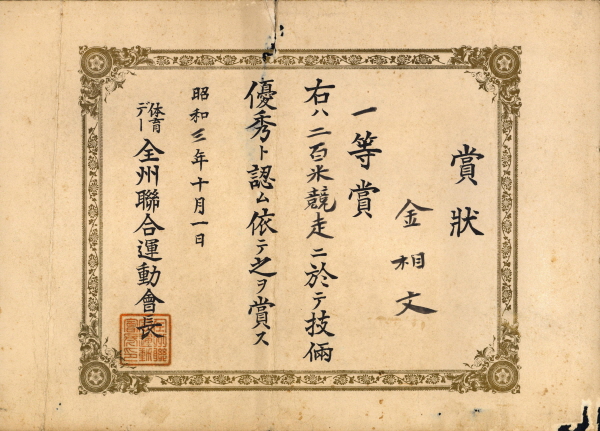 賞狀
金相文
一等賞
右ハ二百米競走ニ於テ技倆
優秀ト認ム依テ之ヲ賞ス
昭和三年十月一日
体育デー
全州聯合運動會長